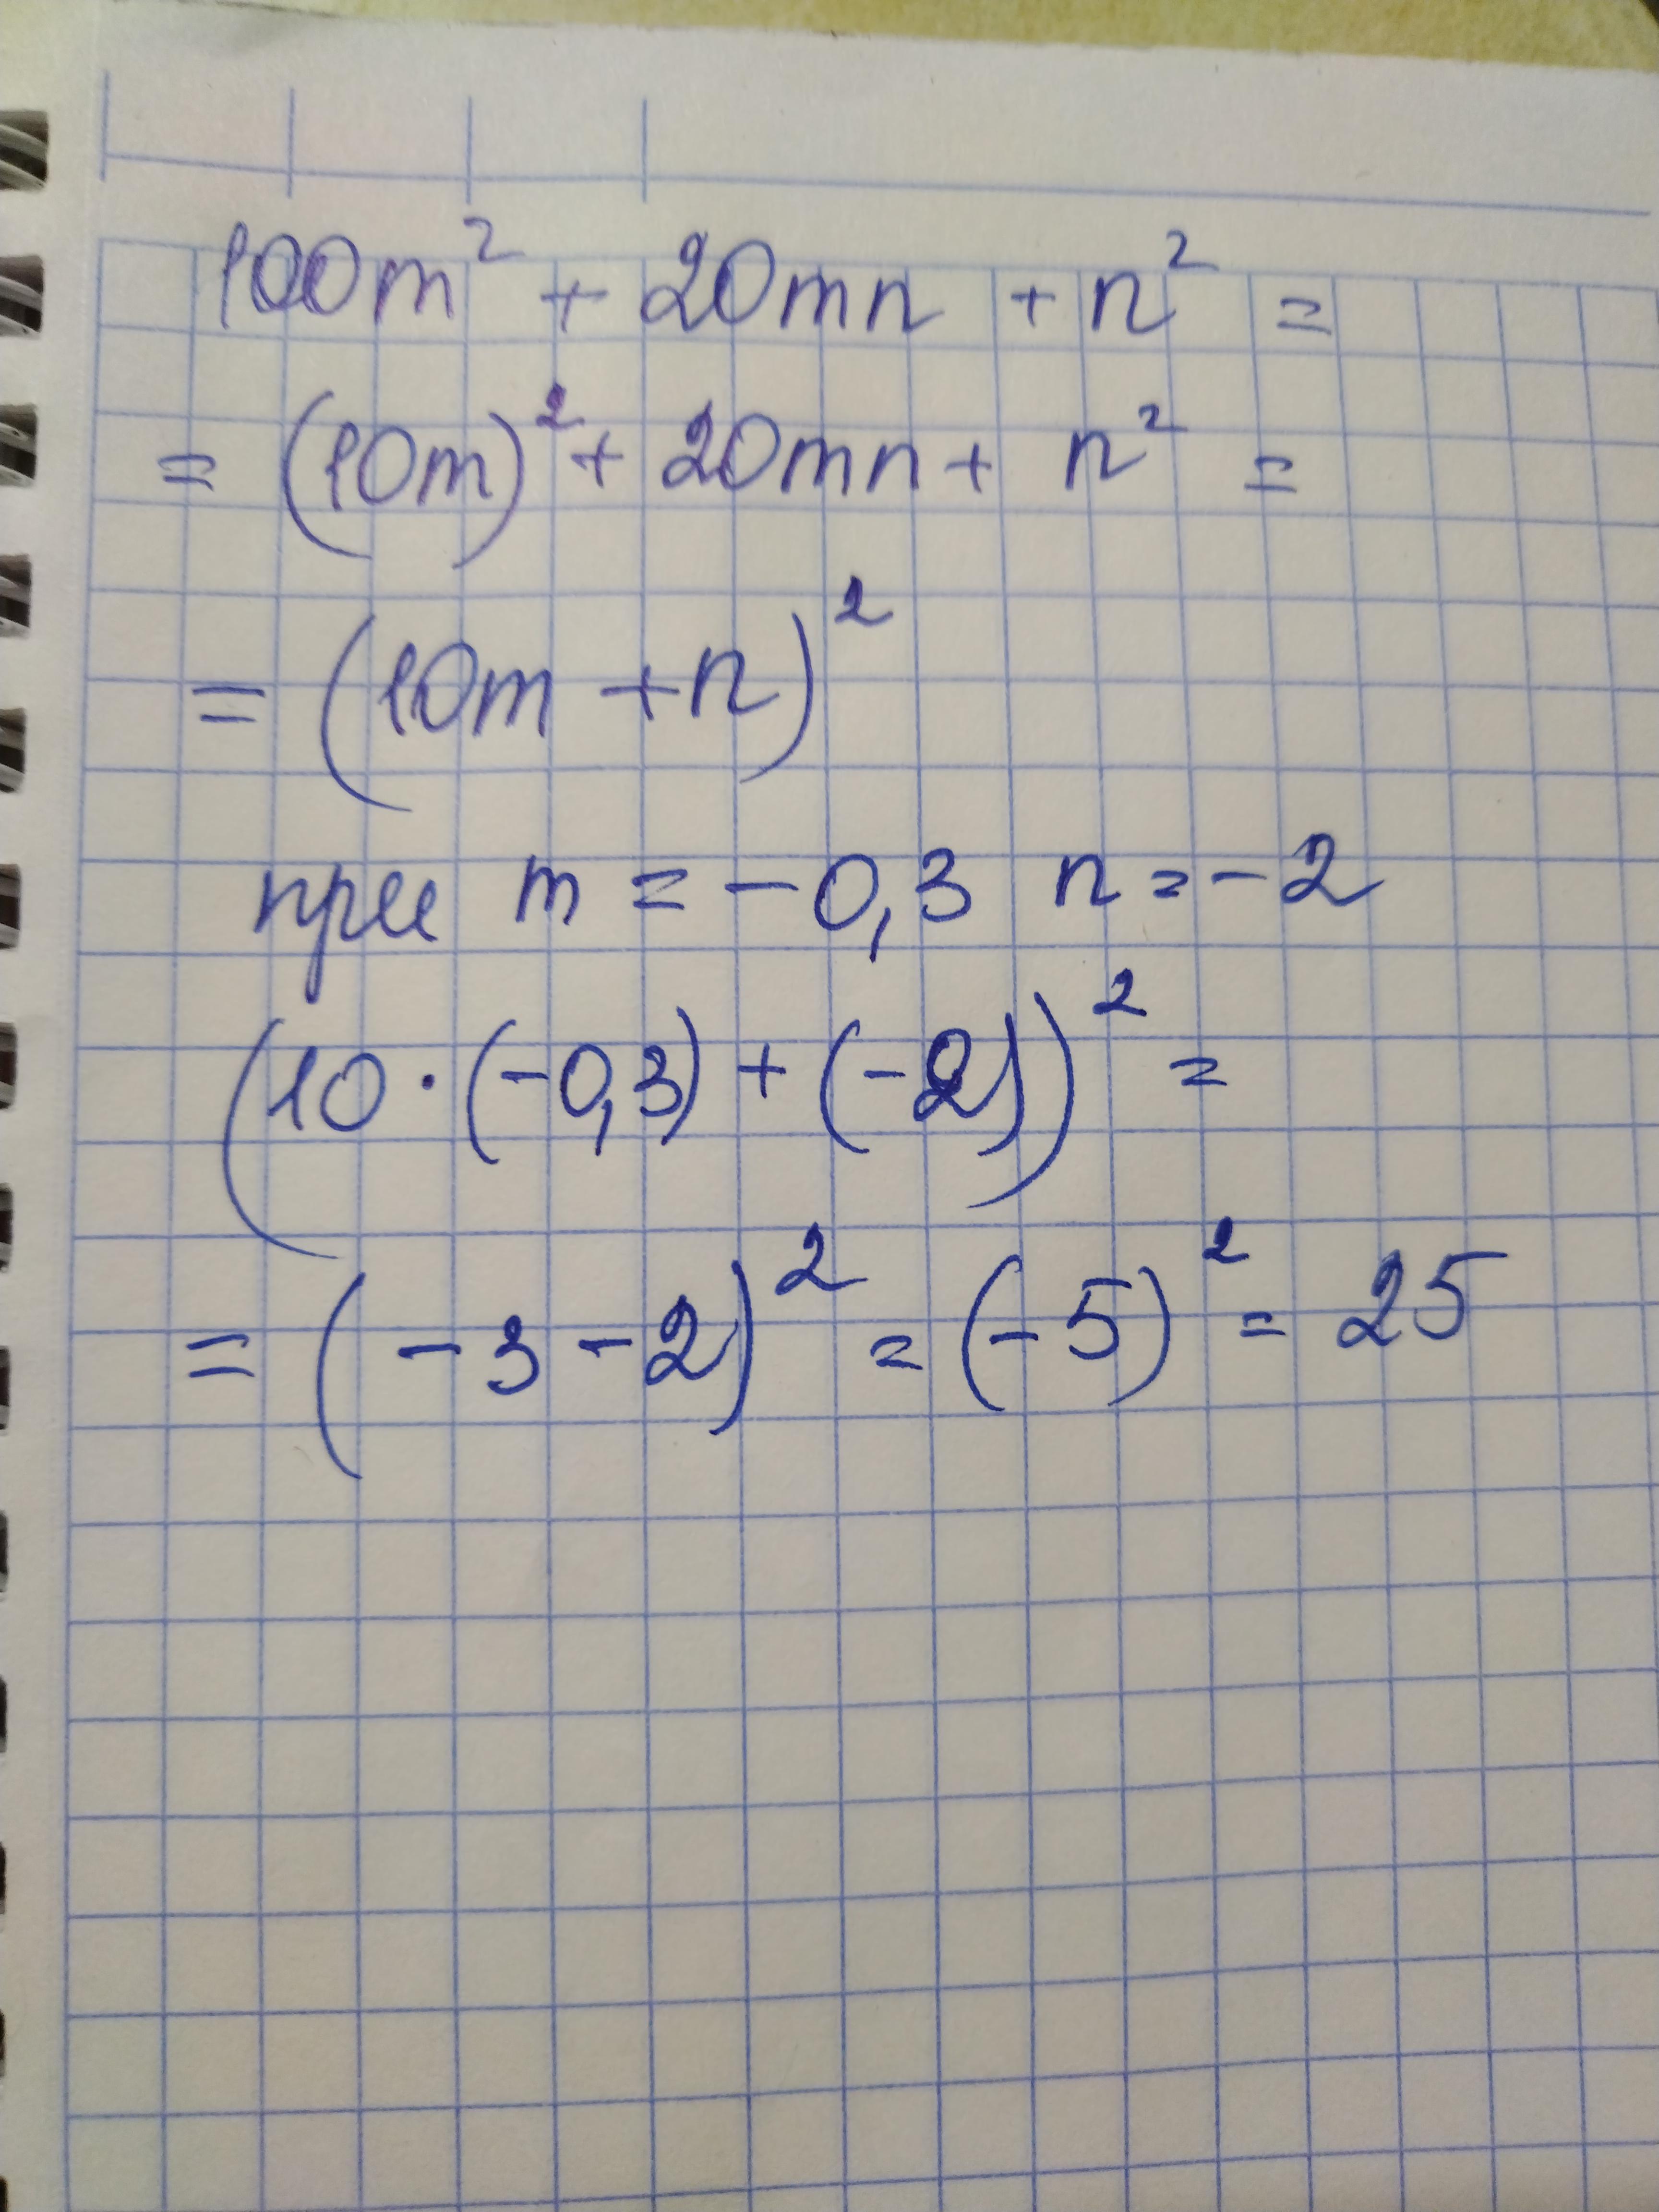 100m² + 20mn + n² =
= (10m)² + 20mn + n² =
= (10m + n)²
при m = -0,3 n = -2
(10 · (-0,3) + (-2))² =
= (-3 - 2)² = (-5)² = 25